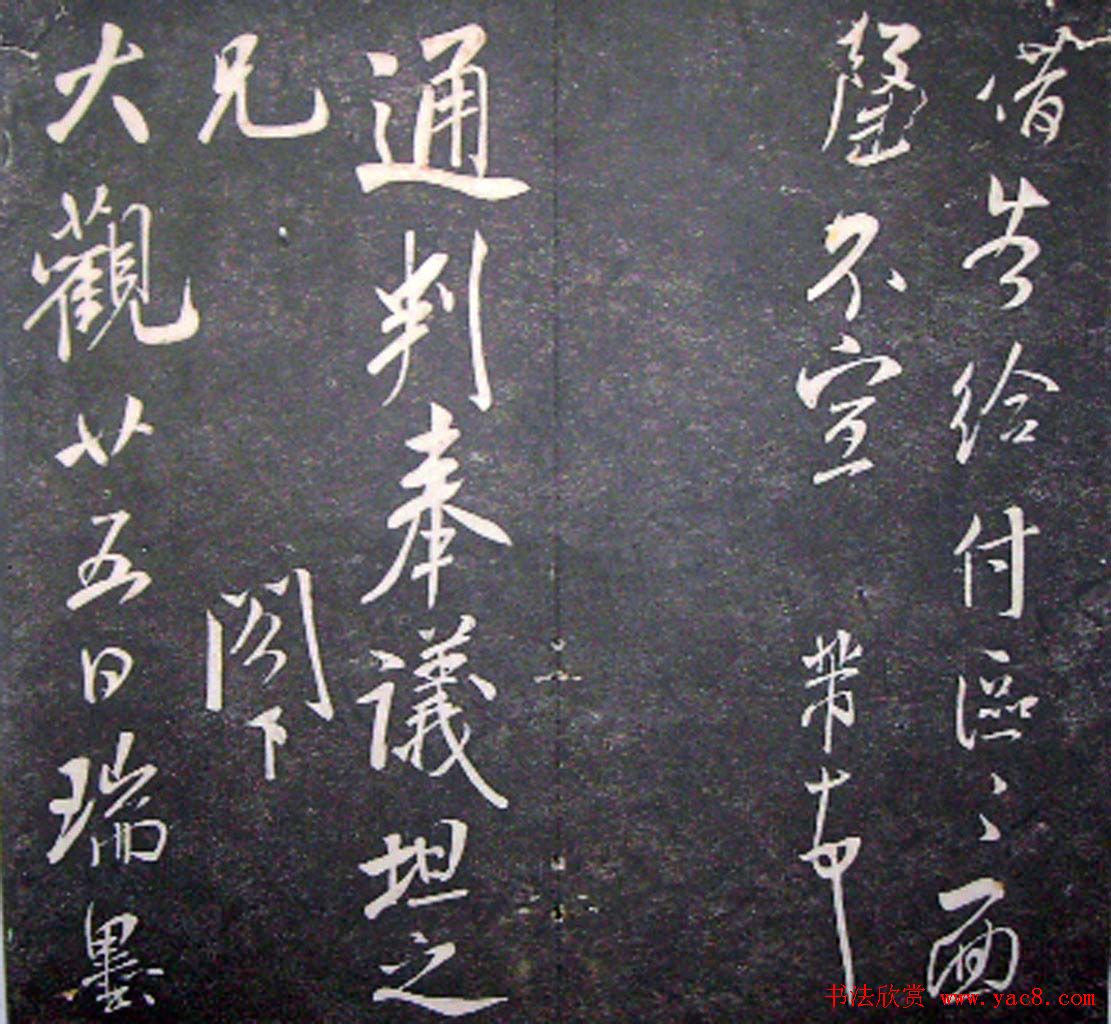 借告給付區〻面
罄不宣 芾
通判奉議坦之
兄 閣下
大觀廿五日瑞墨
书法欣赏 www.yac8.com